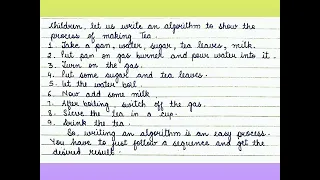 Children, let us write an algorithm to show the
process of making Tea.
1. Take a pan, water, sugar, tea leaves, milk.
2. Put pan on gas burner and pour water into it.
3. Turn on the gas.
4. Put some sugar and tea leaves.
5. Let the water boil.
6. Now add some milk.
7. After boiling, switch off the gas.
8. Sieve the tea in a cup.
9. Drink the tea.
So, writing an algorithm is an easy process.
You have to just follow a sequence and get the
desired result.